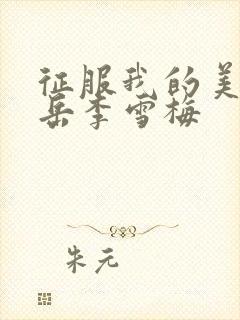 征服我的美
岳李雪梅
朱元